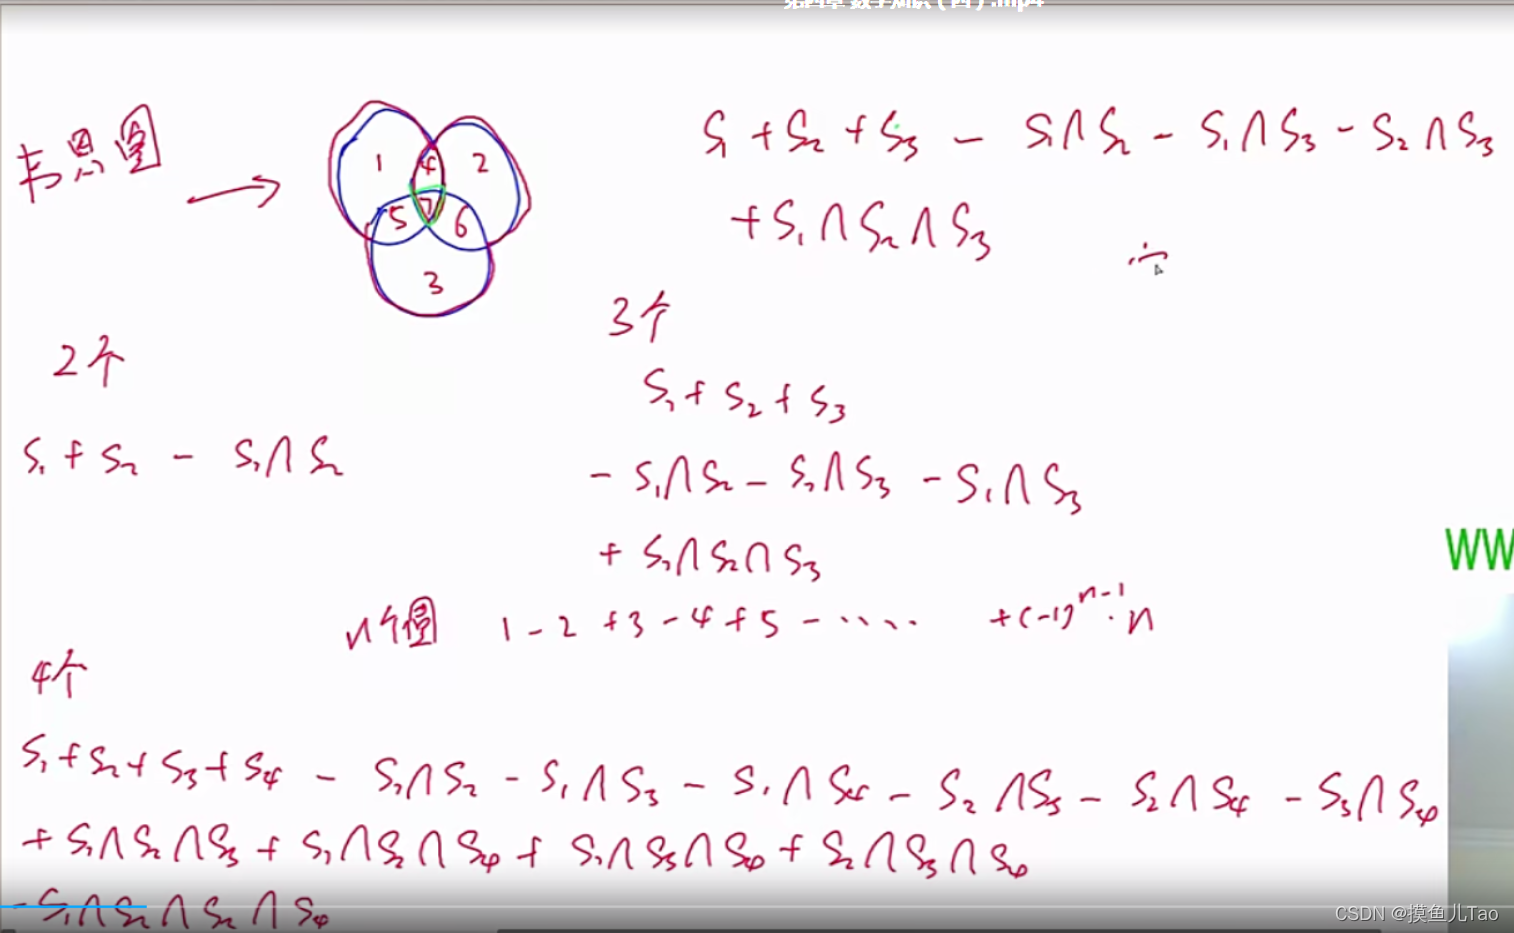 第四章 数学知识（四）.mp4
韦恩图
1 4 2
5 7 6
3
S₁ + S₂ + S₃ - S₁∩S₂ - S₁∩S₃ - S₂∩S₃
+ S₁∩S₂∩S₃
2个
S₁ + S₂ - S₁∩S₂
3个
S₁ + S₂ + S₃
- S₁∩S₂ - S₂∩S₃ - S₁∩S₃
+ S₁∩S₂∩S₃
n个圆 1 - 2 + 3 - 4 + 5 - ····· + (-1)ⁿ⁻¹ · n
4个
S₁ + S₂ + S₃ + S₄ - S₁∩S₂ - S₁∩S₃ - S₁∩S₄ - S₂∩S₃ - S₂∩S₄ - S₃∩S₄
+ S₁∩S₂∩S₃ + S₁∩S₂∩S₄ + S₁∩S₃∩S₄ + S₂∩S₃∩S₄
- S₁∩S₂∩S₂∩S₄
WW
CSDN @摸鱼儿Tao